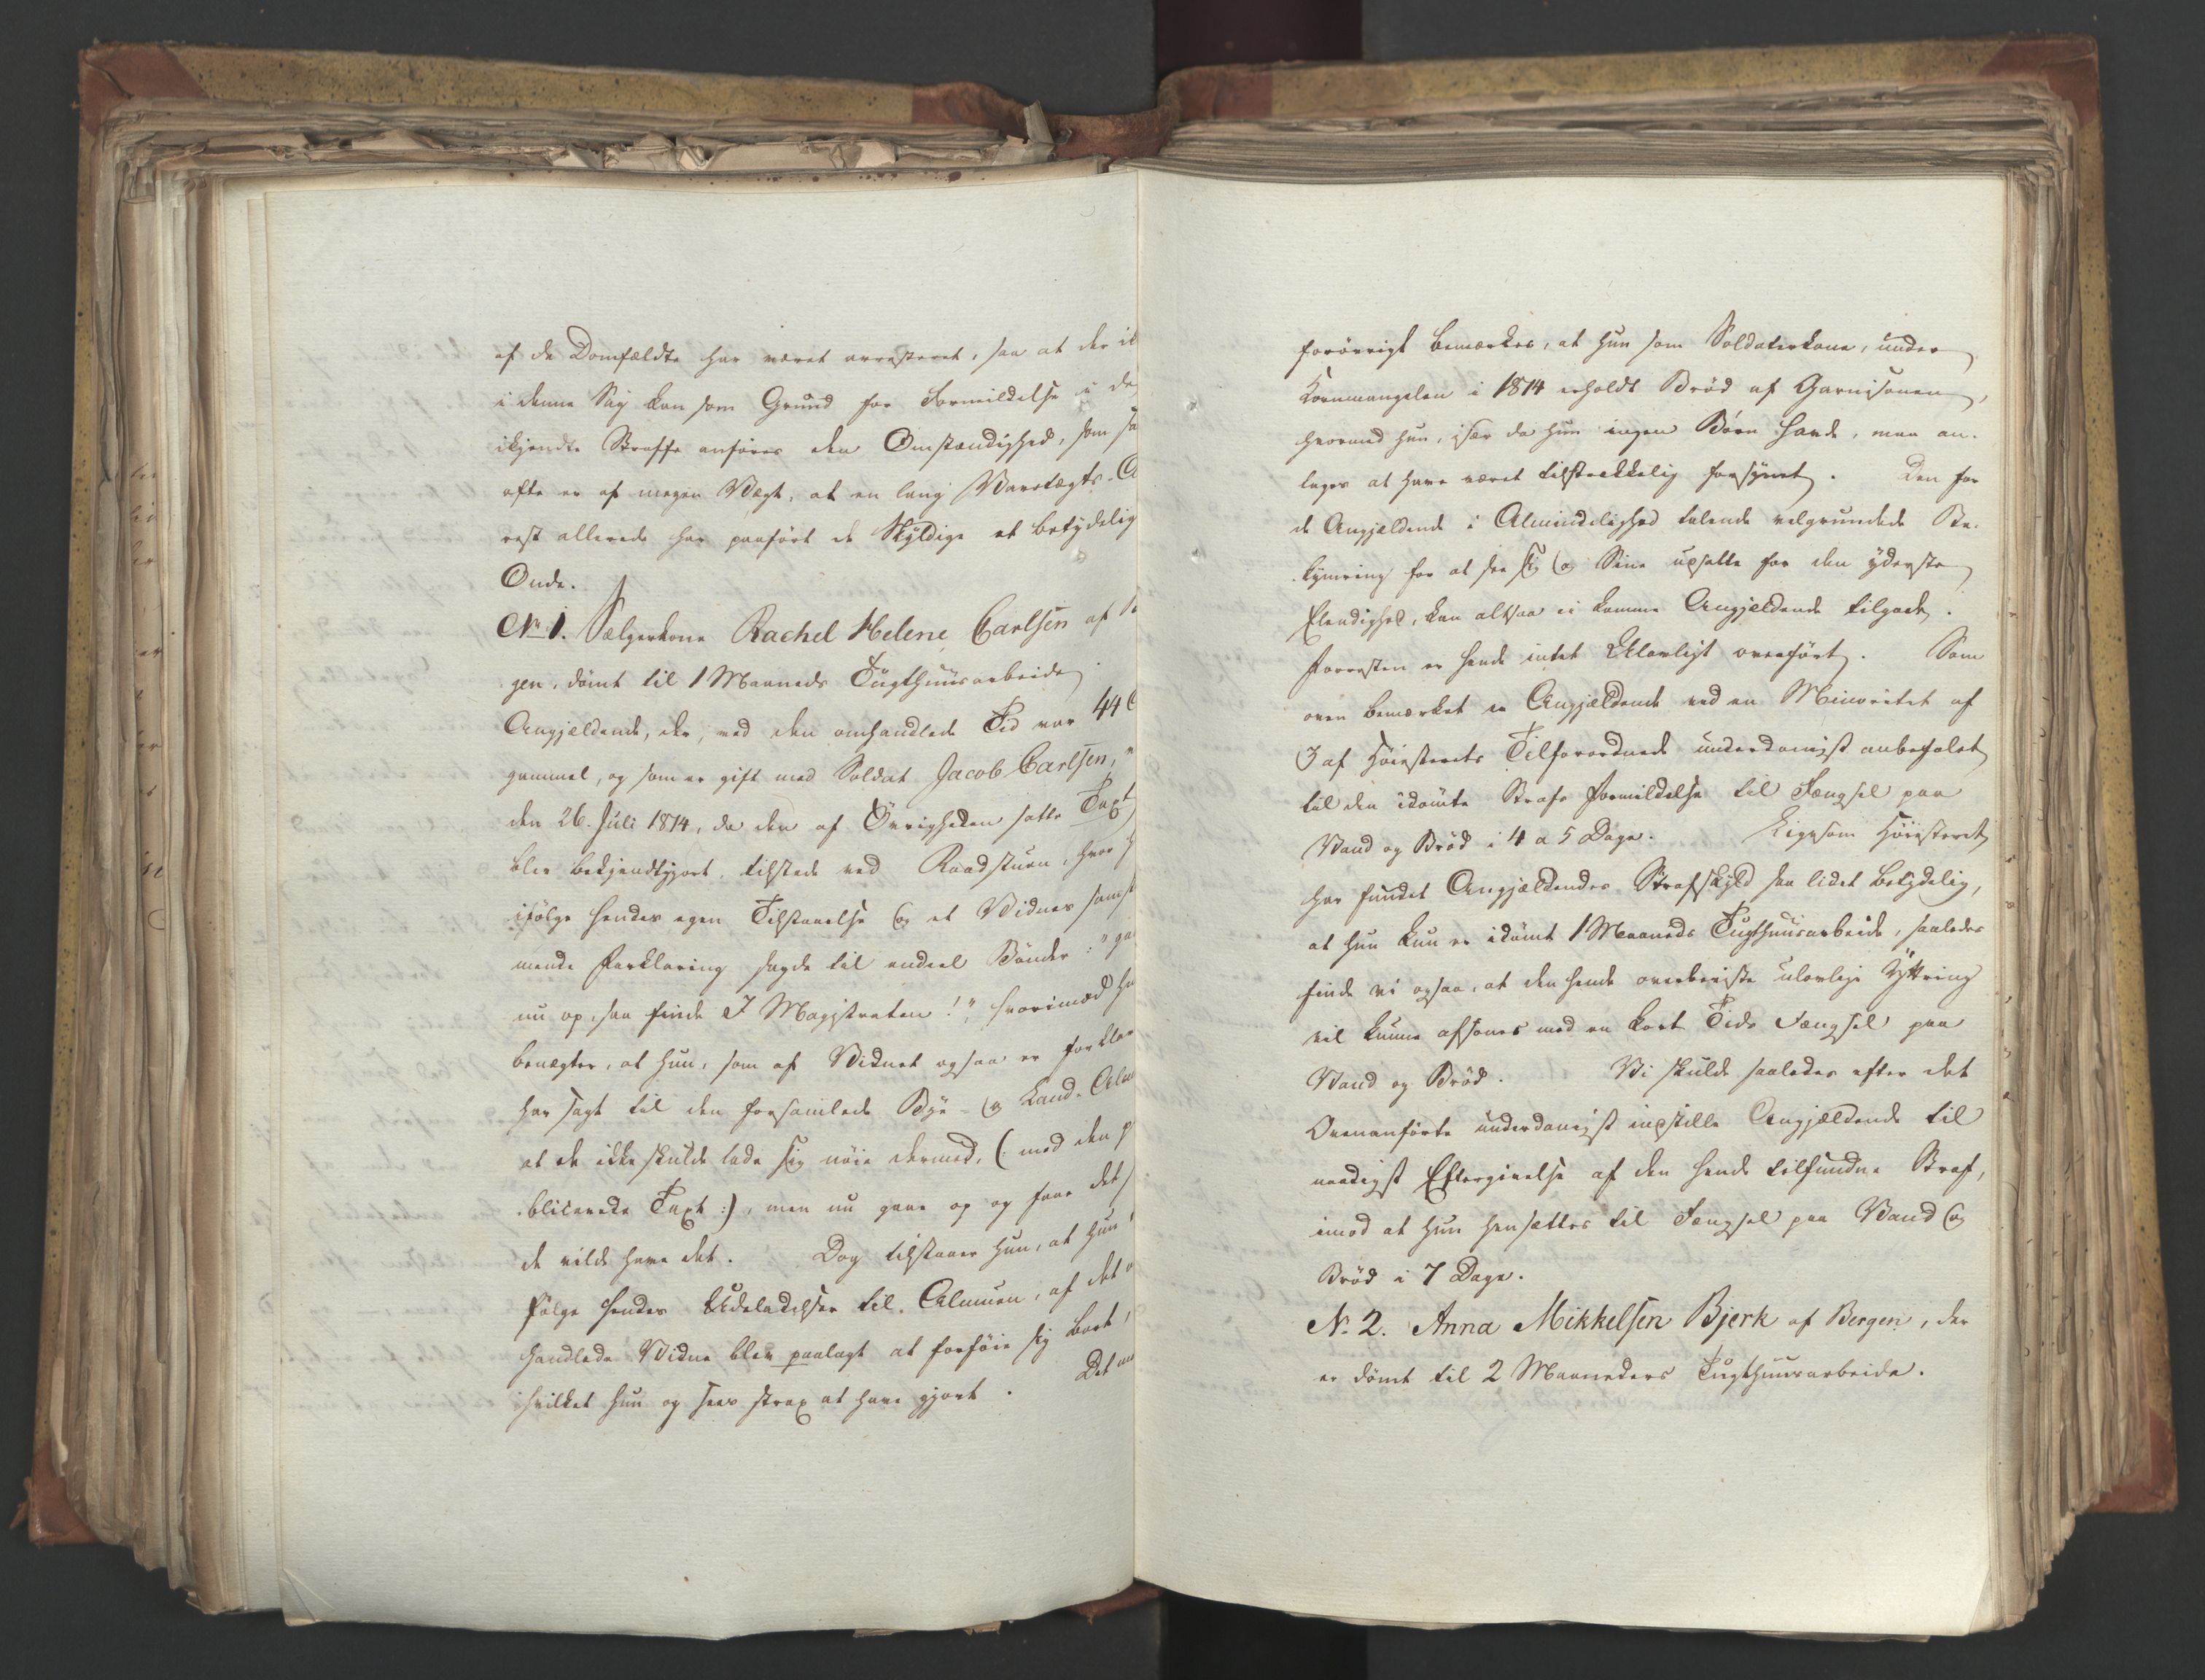 af de Domfældte har været arresteret, saa at der ik
i denne Sag kan som Grund for Formildelse i de
ikjendte Straffe anføres den Omstændighed, som sa
ofte er af megen Vægt, at en lang Varetægts-A
rest allerede har paaført de Skyldige et betydelig
Onde.
No 1. Sælgerkone Rachel Helene Carlsen af
gen, dømt til 1 Maaneds Tugthuusarbeide.
Angjældende, der, ved den omhandlede Tid var 44
gammel, og som er gift med Soldat Jacob Carlsen,
den 26. Juli 1814, da den af Øvrigheden satte Taxt
blev bekjendtgjort, tilstede ved Raadstuen, hvor h
ifølge hendes egen Tilstaaelse og et Vidnes samst
mende Forklaring sagde til endeel Bønder: "gaa
nu op, saa finde I Magistraten!", hvorimod hu
benægter, at hun, som af Vidnet ogsaa er forklar
har sagt til den forsamlede Bye- og Land-Alm
at de ikke skulde lade sig nøie dermed, (: med den p
blicerede Taxt :), men nu gaae op og faae det,
de vilde have det. Dog tilstaaer hun, at hun
følge hendes Udeladelser til Almuen, af det o
handlede Vidne blev paalagt at forføie sig bort,
hvilket hun og sees strax at have gjort. Det
forøvrigt bemærkes, at hun som Soldaterkone, under
Kornmangelen i 1814 erholdt Brød af Garnisonen,
hvormed hun, især da hun ingen Børn havde, maa an-
tages at have været tilstrækkelig forsynet. Den for
de Angjældende i Almindelighed talende velgrundede Be-
kymring for at see sig og Sine udsatte for den yderste
Elendighed, kan altsaa ei komme Angjældende tilgode.
Forresten er hende intet Ulovligt overført. Som
oven bemærket er Angjældende ved en Minoritet af
3 af Høiesterets Tilforordnede underdanigst anbefalet
til den idømte Strafs Formildelse til Fængsel paa
Vand og Brød i 4 a 5 Dage. Ligesom Høiesteret
har fundet Angjældendes Strafskyld saa lidet betydelig,
at hun kun er idømt 1 Maaneds Tugthuusarbeide, saaledes
finde vi ogsaa, at den hende overbeviste ulovlige Yttring
vil kunne afsones med en kort Tids Fængsel paa
Vand og Brød. Vi skulde saaledes efter det
Ovenanførte underdanigst indstille Angjældende til
naadigst Eftergivelse af den hende tilfundne Straf,
imod at hun hensættes til Fængsel paa Vand og
Brød i 7 Dage.
No 2. Anna Mikkelsen Bjerk af Bergen, der
er dømt til 2 Maaneders Tugthuusarbeide.